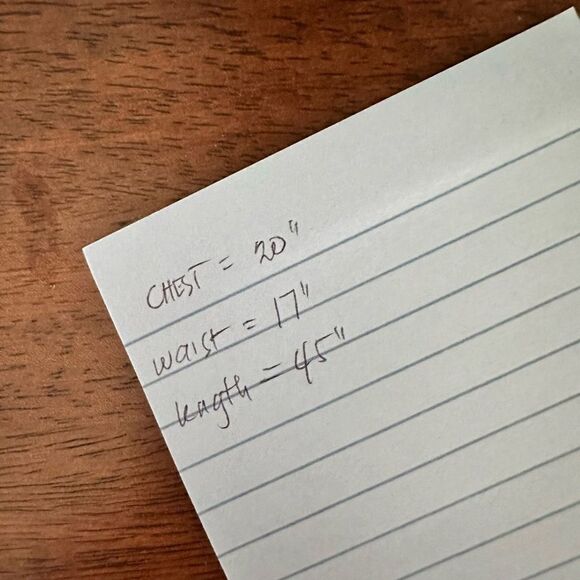 CHEST = 20"
waist = 17"
length = 45"